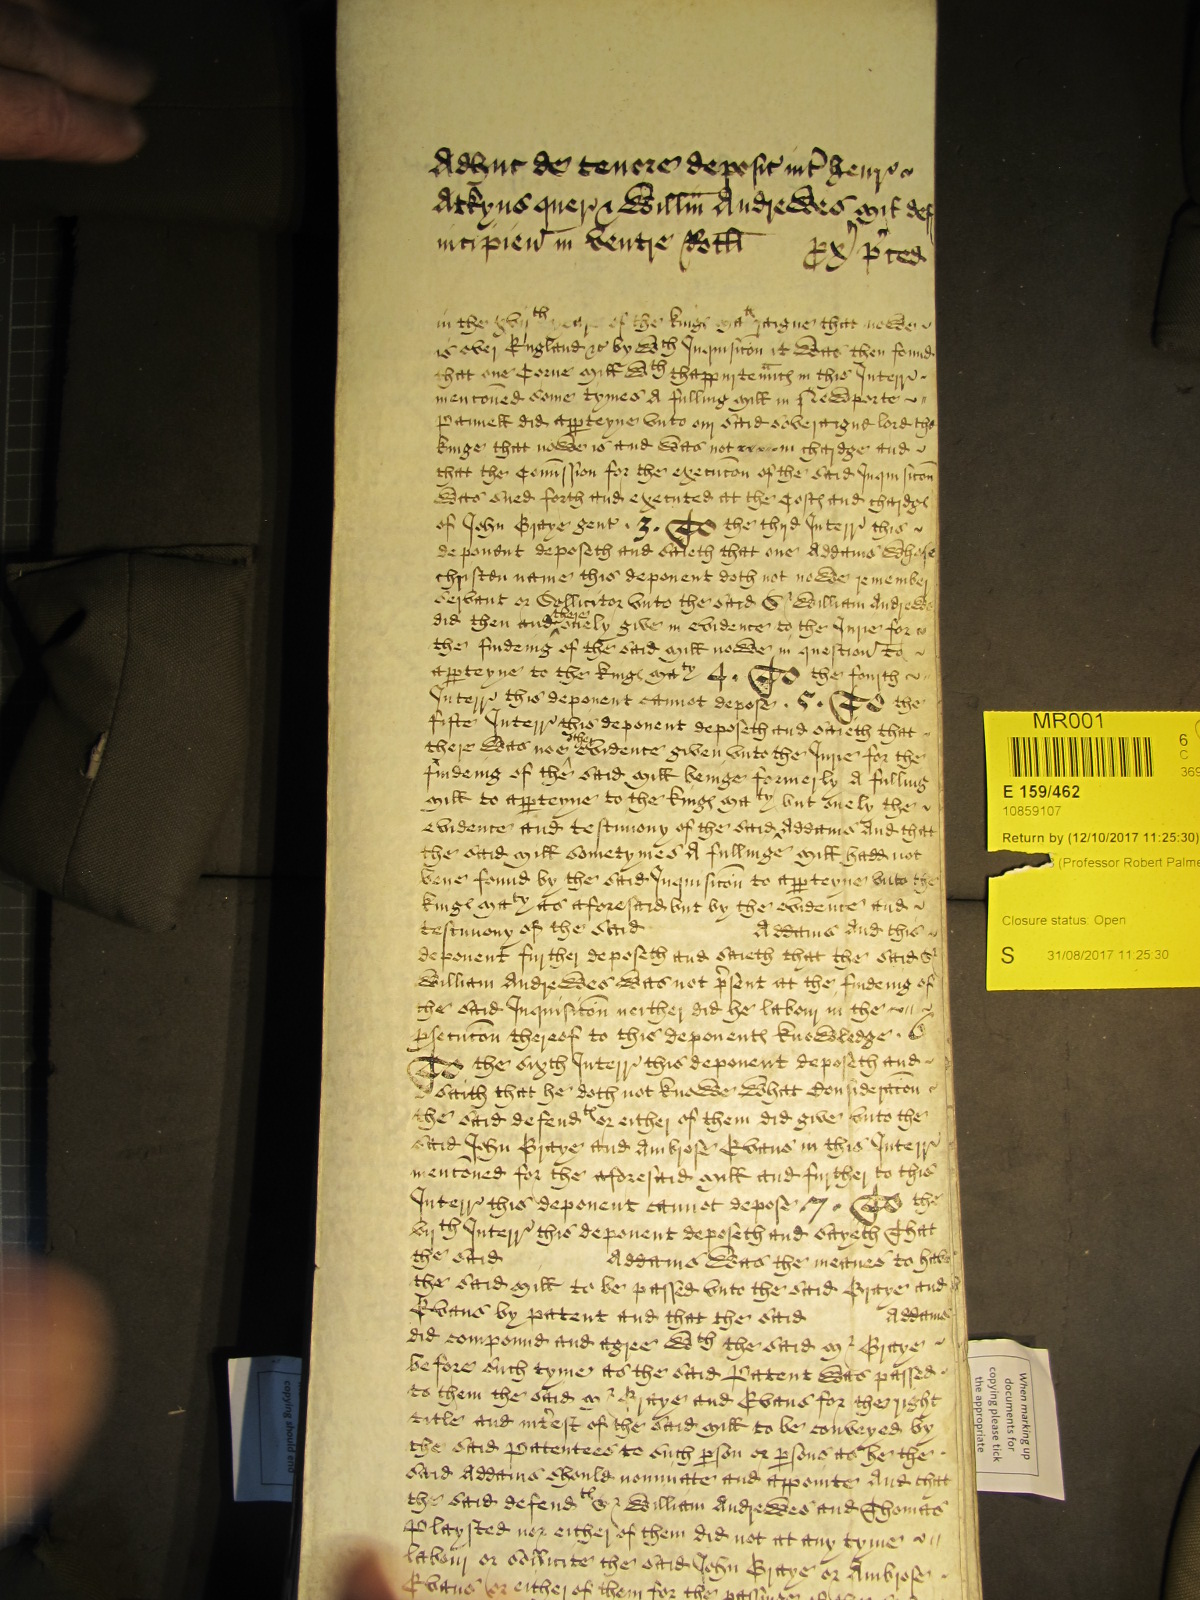 Adhuc de tenore deposic int Henr
Atkyns quer & Willm Andrewes mil def
incipien in ventre Rotli px pced
in the xvijth yeare of the kings matis raigne that nowe
is over England &c by wch Inquisicon it was then found
that one Corne mill wth thappurtennces in this Interr
menconed some tymes A fulling mill in Newporte
Pannell did apperteyne unto our said soveraigne lord the
kinge that nowe is and was not in chardge and
that the Comission for the execucon of the said Inquisicon
was sued forth and executed at the Costs and chardges
of John Graye gent . 3 . To the thyrd Interr this
deponent deposeth and saieth that one Addams whose
christen name this deponent doth not nowe remember
servant or Sollicitor unto the said Sr William Andrewes
did then and there onely give in evidence to the Jurie for
the findeing of the said mill nowe in question to
apperteyne to the kings maty 4 . To the fourth
Interr this deponent cannot depose . 5 . To the
fifte Interr this deponent deposeth and saieth that
there was noe other evidence given unto the Jurie for the
findeing of the said mill beinge formerly A fulling
mill to apperteyne to the kings maty but onely the
evidence and testimony of the said Addams And that
the said mill sometymes A fullinge mill hadd not
bene found by the said Inquisicon to apperteyne unto the
kings maty as aforesaid but by the evidence and
testimony of the said Addams And this
deponent further deposeth and saieth that the said Sr
William Andrewes was not psent at the findeing of
the said Inquisicon neither did he labour in the
psecucon thereof to this deponents knowledge . 6
To the sixth Interr this deponent deposeth and
saith that he doth not knowe what Consideracon
the said defendts or either of them did give unto the
said John Graye and Ambrose Evans in this Interr
menconed for the aforesaid mill and further to this
Interr this deponent cannot depose 7 . To the
vijth Interr this deponent deposeth and sayeth That
the said Addams was the meanes to have
the said mill to be passed unto the said Graye and
Evans by patent and that the said Addams
did compound and agree wth the said mr Graye
before such tyme as the said Patent was passed
to them the said mr Graye and Evans for the right
title and interest of the said mill to be conveyed by
the said Pattentees to such pson or psons as he the
said Addams should nominate and appointe And that
the said defendts Sr William Andrewes and Thomas
Playsted nor either of them did not at any tyme
labour or sollicite the said John Graye or Ambrose
Evans or either of them for the passinge
MR001
6
C
369
E 159/462
10859107
Return by (12/10/2017 11:25:30)
(Professor Robert Palme
Closure status: Open
S 31/08/2017 11:25:30
When marking up
documents for
copying please tick
the appropriate
copying should end